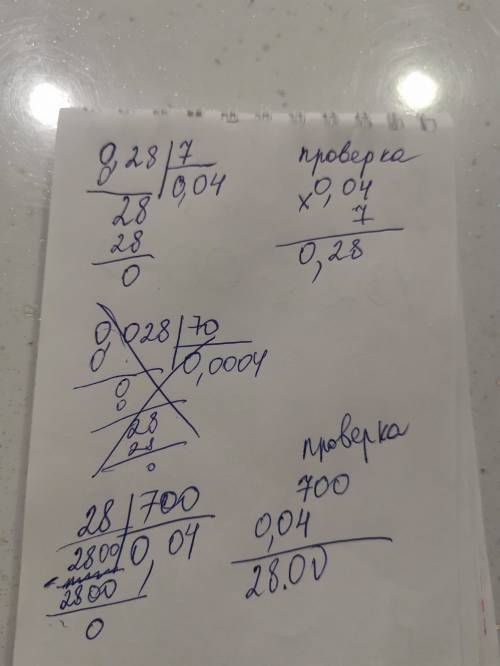 0,28 | 7
0,04
28
28
0
проверка
x 0,04
7
0,28
0,028 | 70
0
0,0004
0
0
28
28
0
28 | 700
2800 | 0,04
2800
0
проверка
700
0,04
28.00